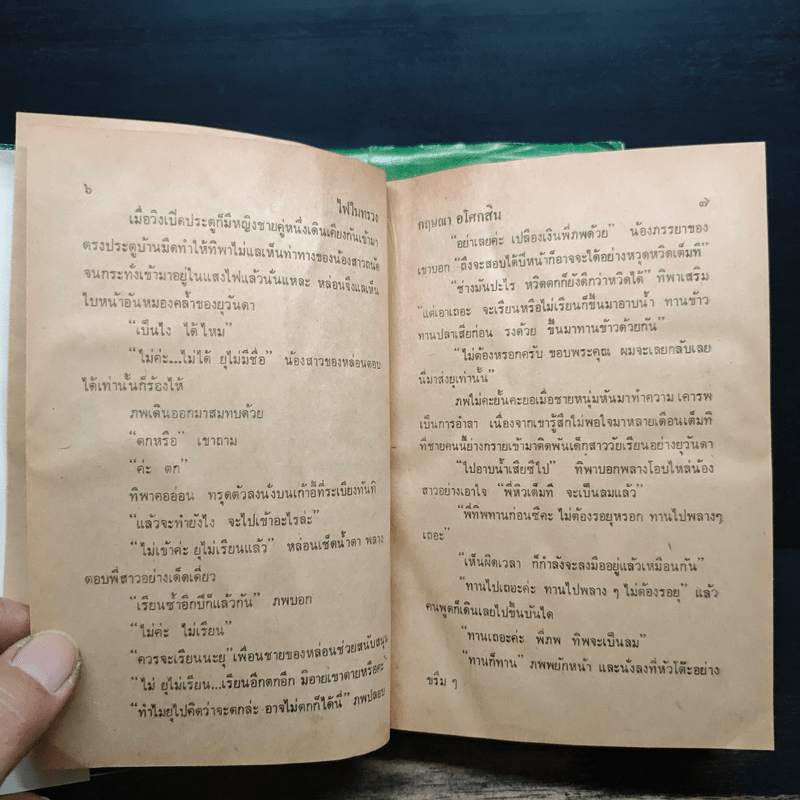 ๖
ไฟในทรวง
เมื่อวิงเปิดประตูก็มีหญิงชายคู่หนึ่งเดินเคียงกันเข้ามา
ตรงประตูบ้านมืดทำให้ทิพาไม่แลเห็นท่าทางของน้องสาวถนัด
จนกระทั่งเข้ามาอยู่ในแสงไฟแล้วนั่นแหละ หล่อนจึงแลเห็น
ใบหน้าอันหมองคล้ำของยุวันดา
“เป็นไง ได้ไหม”
“ไม่ค่ะ...ไม่ได้ ยุไม่มีชื่อ” น้องสาวของหล่อนตอบ
ได้เท่านั้นก็ร้องไห้
ภพเดินออกมาสมทบด้วย
“ตกหรือ” เขาถาม
“ค่ะ ตก”
ทิพาคออ่อน ทรุดตัวลงนั่งบนเก้าอี้ที่ระเบียงทันที
“แล้วจะทำยังไง จะไปเข้าอะไรล่ะ”
“ไม่เข้าค่ะ ยุไม่เรียนแล้ว” หล่อนเช็ดน้ำตา พลาง
ตอบพี่สาวอย่างเด็ดเดี่ยว
“เรียนซ้ำอีกปีก็แล้วกัน” ภพบอก
“ไม่ค่ะ ไม่เรียน”
“ควรจะเรียนนะยุ” เพื่อนชายของหล่อนช่วยสนับสนุน
“ไม่ ยุไม่เรียน...เรียนอีกตกอีก มิอายเขาตายหรือคะ”
“ทำไมยุไปคิดว่าจะตกล่ะ อาจไม่ตกก็ได้นี่” ภพปลอบ
กฤษณา อโศกสิน
๗
“อย่าเลยค่ะ เปลืองเงินพี่ภพด้วย” น้องภรรยาของ
เขาบอก “ถึงจะสอบได้ปีหน้าก็อาจจะได้อย่างหวุดหวิดเต็มที”
“ช่างมันปะไร หวิดตกก็ยังดีกว่าหวิดได้” ทิพาเสริม
“แต่เอาเถอะ จะเรียนหรือไม่เรียนก็ขึ้นมาอาบน้ำ ทานข้าว
ทานปลาเสียก่อน รงด้วย ขึ้นมาทานข้าวด้วยกัน”
“ไม่ต้องหรอกครับ ขอบพระคุณ ผมจะเลยกลับเลย
นี่มาส่งยุเท่านั้น”
ภพไม่คะยั้นคะยอเมื่อชายหนุ่มหันมาทำความ เคารพ
เป็นการอำลา เนื่องจากเขารู้สึกไม่พอใจมาหลายเดือนเต็มที
ที่ชายคนนี้ย่างกรายเข้ามาติดพันเด็กสาววัยเรียนอย่างยุวันดา
“ไปอาบน้ำเสียซีไป” ทิพาบอกพลางโอบไหล่น้อง
สาวอย่างเอาใจ “พี่หิวเต็มที จะเป็นลมแล้ว”
“พี่ทิพทานก่อนซีคะ ไม่ต้องรอยุหรอก ทานไปพลางๆ
เถอะ”
“เห็นผิดเวลา ก็กำลังจะลงมืออยู่แล้วเหมือนกัน”
“ทานไปเถอะค่ะ ทานไปพลาง ๆ ไม่ต้องรอยุ” แล้ว
คนพูดก็เดินเลยไปขึ้นบันได
“ทานเถอะค่ะ พี่ภพ ทิพจะเป็นลม”
“ทานก็ทาน” ภพพยักหน้า และนั่งลงที่หัวโต๊ะอย่าง
ขรึม ๆ